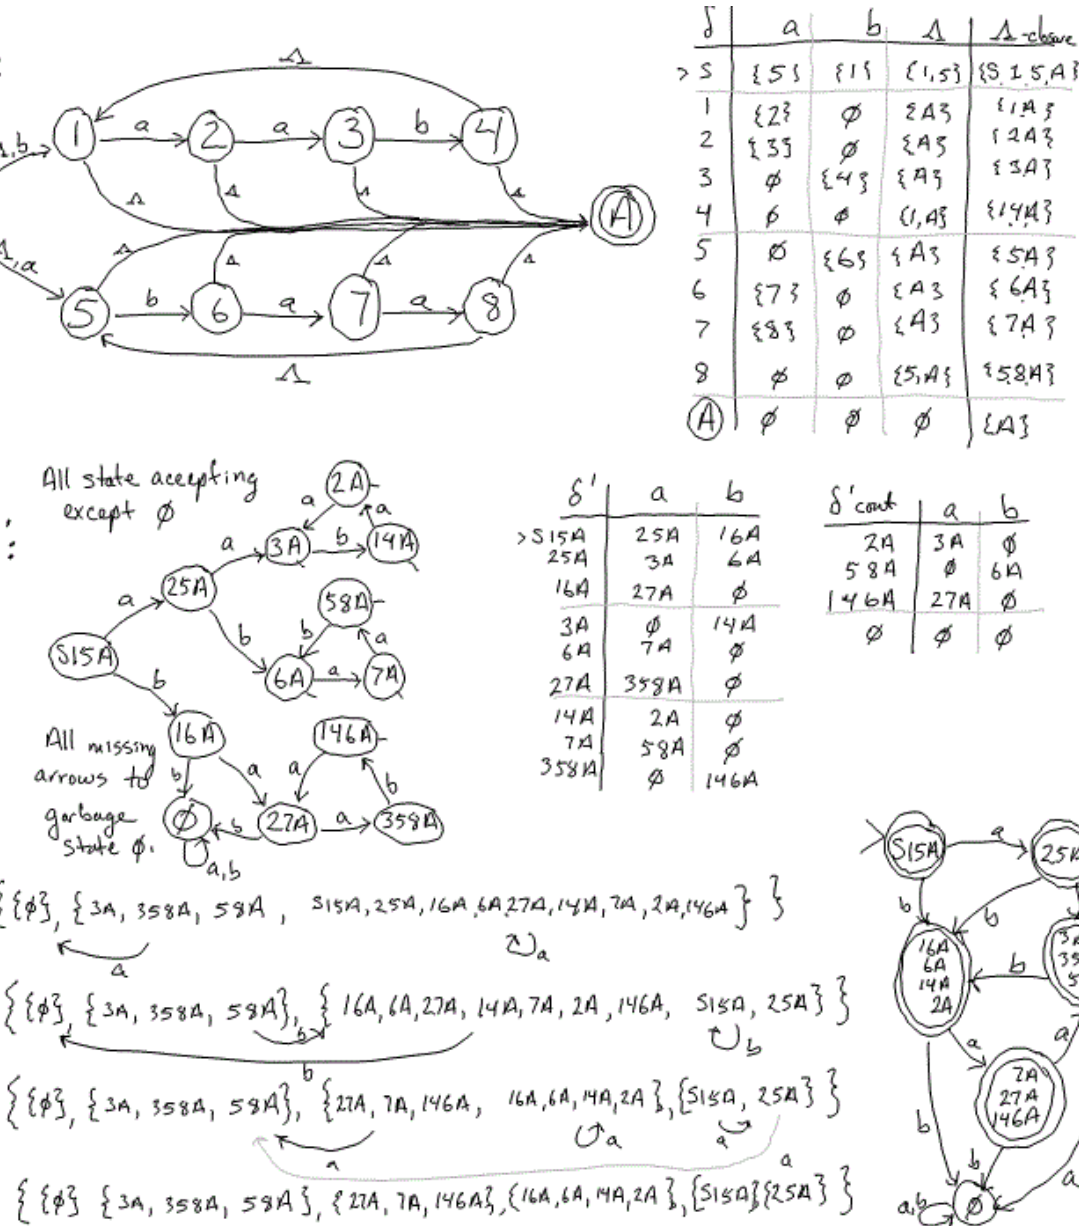 Λ
1 a 2 a 3 b 4
Λ,b
Λ Λ Λ Λ
A
Λ,a
Λ Λ Λ Λ
5 b 6 a 7 a 8
Λ
δ a b Λ Λ-closure
>S {5} {1} {1,5} {S,1,5,A}
1 {2} ∅ {A} {1,A}
2 {3} ∅ {A} {2A}
3 ∅ {4} {A} {3A}
4 ∅ ∅ {1,A} {1,4,A}
5 ∅ {6} {A} {5A}
6 {7} ∅ {A} {6A}
7 {8} ∅ {A} {7A}
8 ∅ ∅ {5,A} {5,8,A}
A ∅ ∅ ∅ {A}
All state accepting
except ∅
:
2A
a a
a 3A b 14A
25A
a
58A
b b a
S15A
6A a 7A
b
16A 146A
All missing
arrows to
garbage
state ∅.
b a a b
∅ b 27A a 358A
a,b
δ' a b
>S15A 25A 16A
25A 3A 6A
16A 27A ∅
3A ∅ 14A
6A 7A ∅
27A 358A ∅
14A 2A ∅
7A 58A ∅
358A ∅ 146A
δ' cont a b
2A 3A ∅
58A ∅ 6A
146A 27A ∅
∅ ∅ ∅
{{∅}, {3A, 358A, 58A, S15A, 25A, 16A, 6A, 27A, 14A, 7A, 2A, 146A} }
a a
{{∅}, {3A, 358A, 58A}, {16A, 6A, 27A, 14A, 7A, 2A, 146A, S15A, 25A}}
b b b
{{∅}, {3A, 358A, 58A}, {27A, 7A, 146A, 16A, 6A, 14A, 2A}, {S15A, 25A}}
a a a
a
{{∅} {3A, 358A, 58A}, {27A, 7A, 146A}, {16A, 6A, 14A, 2A}, {S15A}{25A}}
S15A a 25A
b b
16A
6A
14A
2A
b
a a
7A
27A
146A
b b
a,b ∅ a